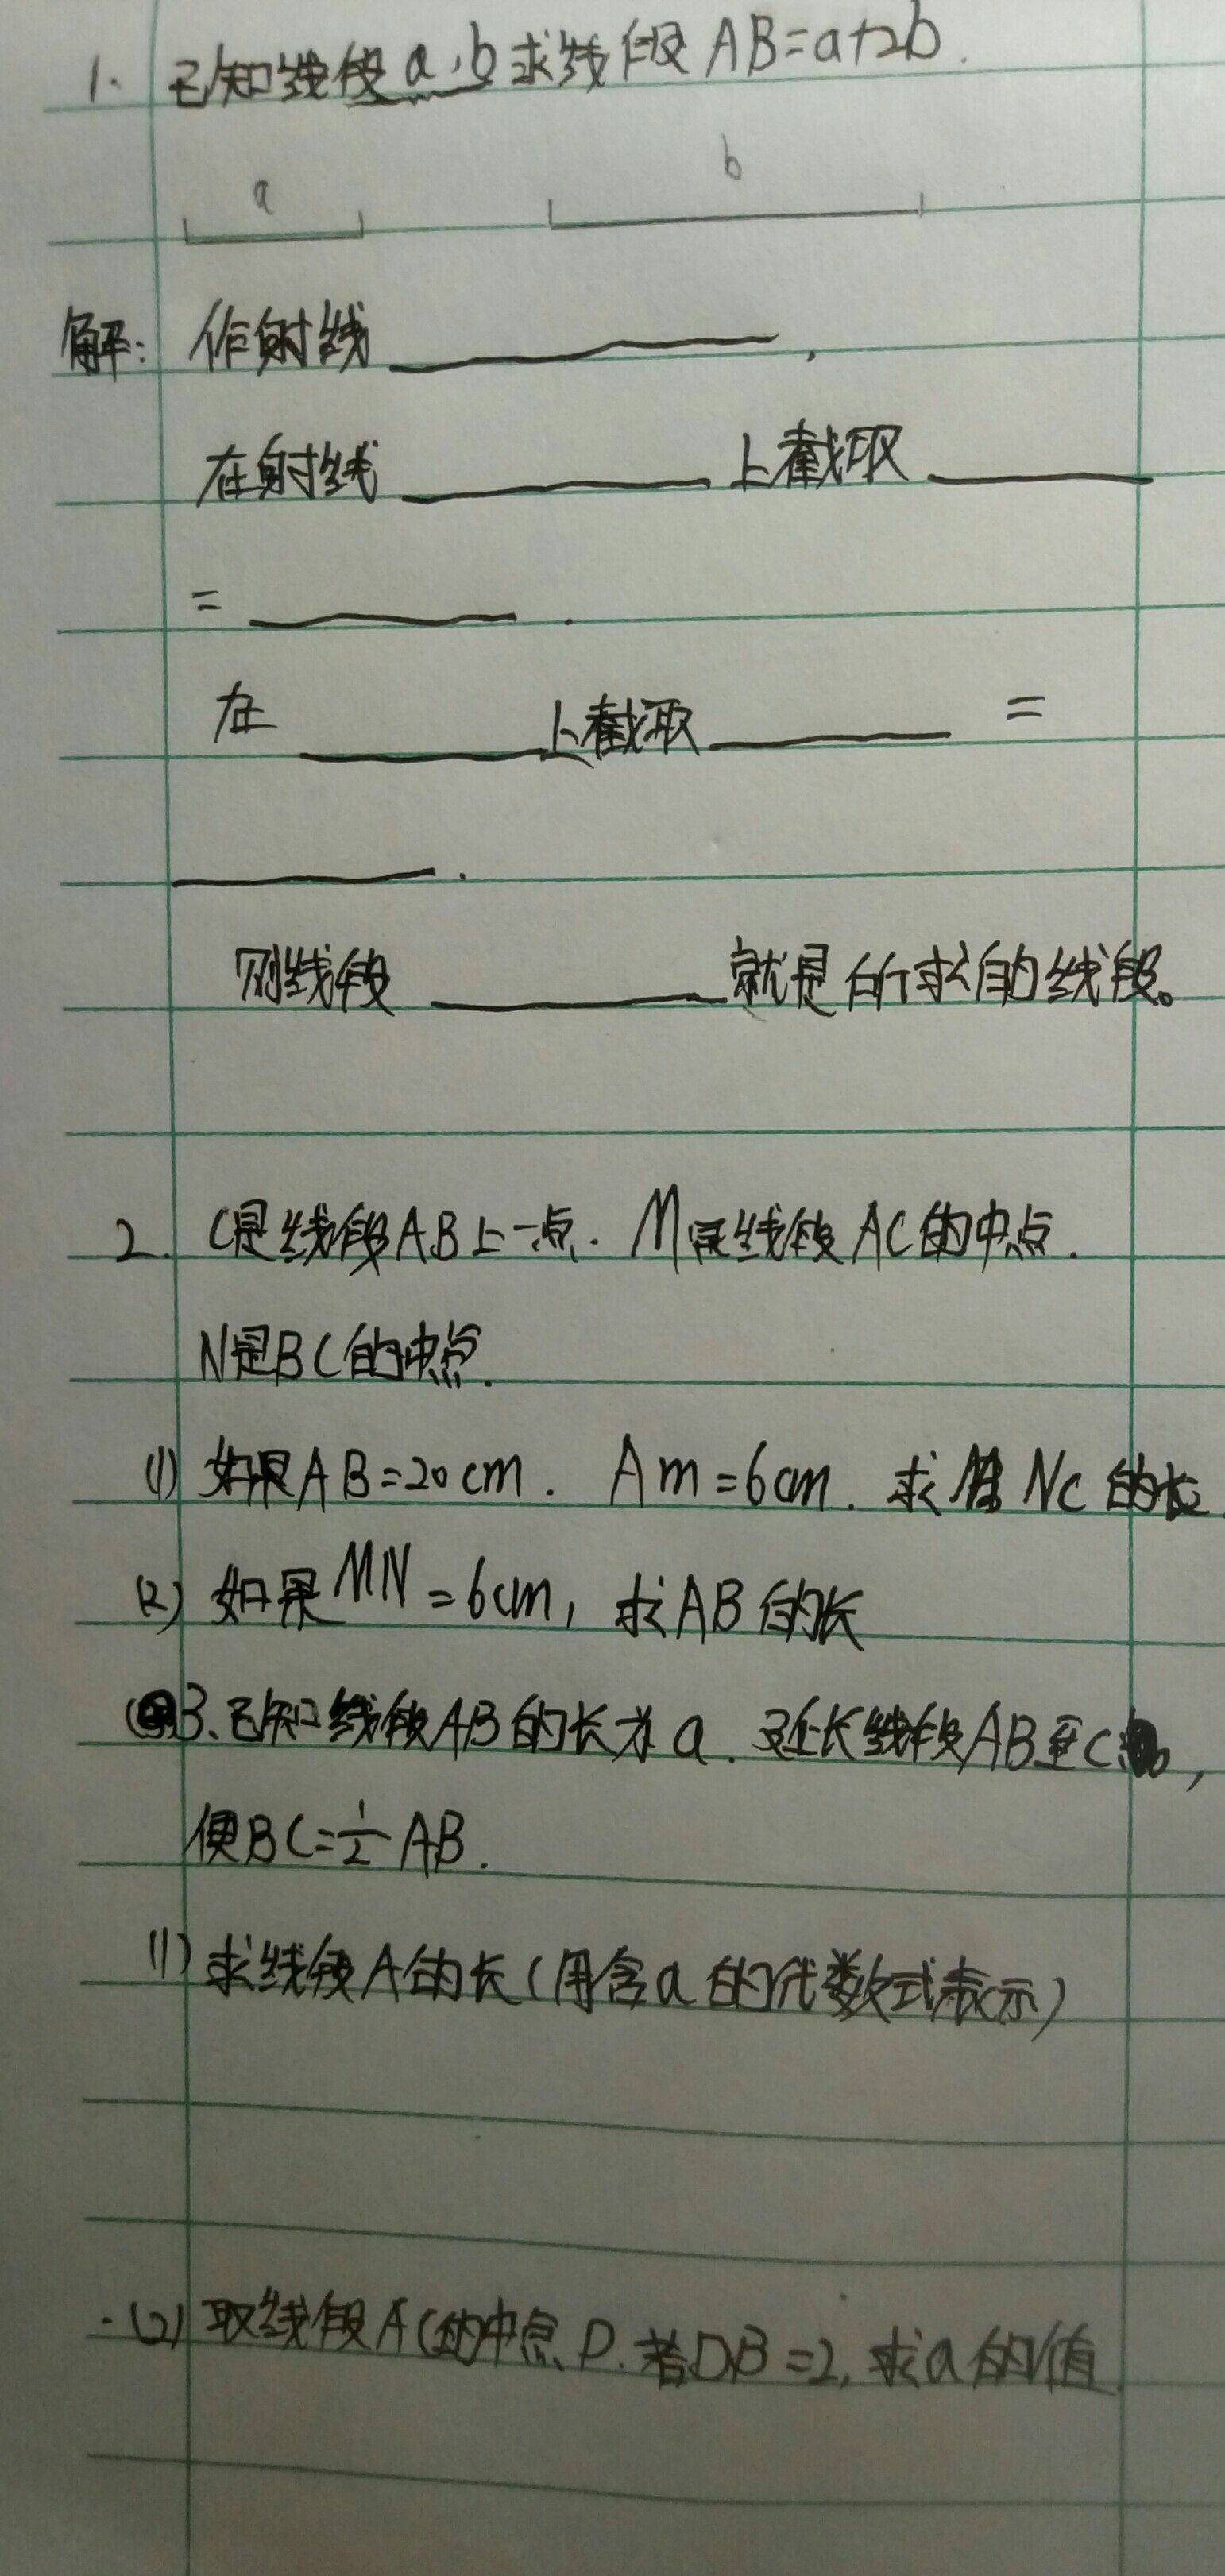 1. 已知线段a,b求线段AB=a+2b.
a b
解: 作射线 ,
在射线 上截取
= .
在 上截取 =
.
则线段 就是所求的线段。
2. C是线段AB上一点. M是线段AC的中点.
N是BC的中点.
(1) 如果AB=20cm. Am=6cm. 求 NC的长.
(2) 如果MN=6cm, 求AB的长
3.已知线段AB的长为a. 延长线段AB至C,
使BC=½AB.
(1) 求线段A的长(用含a的代数式表示)
(2) 取线段AC的中点D.若DB=2,求a的值.